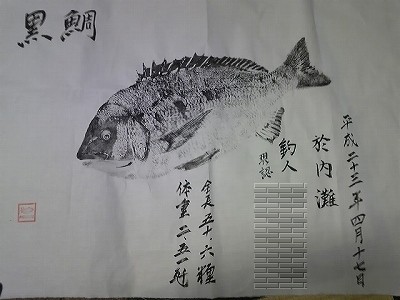 黒鯛
平成二十三年四月十七日
於内灘
釣人
現認
全長五十.六糎
体重二.五一瓩